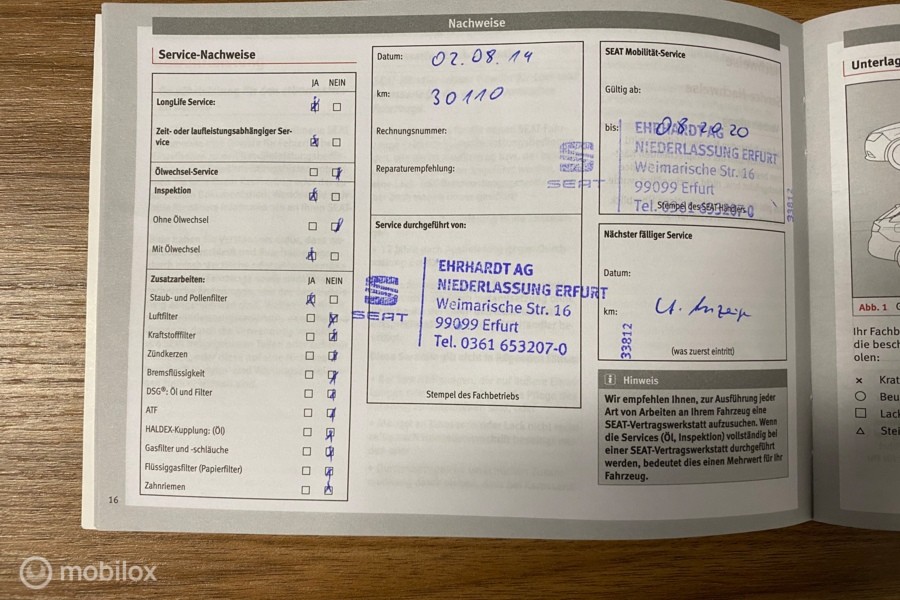 Nachweise
Service-Nachweise
JA NEIN
LongLife Service:
Zeit- oder laufleistungsabhängiger Ser-
vice
Ölwechsel-Service
Inspektion
Ohne Ölwechsel
Mit Ölwechsel
Zusatzarbeiten: JA NEIN
Staub- und Pollenfilter
Luftfilter
Kraftstofffilter
Zündkerzen
Bremsflüssigkeit
DSG®: Öl und Filter
ATF
HALDEX-Kupplung: (Öl)
Gasfilter und -schläuche
Flüssiggasfilter (Papierfilter)
Zahnriemen
16
Datum: 02.08.14
km: 30110
Rechnungsnummer:
Reparaturempfehlung:
Service durchgeführt von:
SEAT
EHRHARDT AG
NIEDERLASSUNG ERFURT
Weimarische Str. 16
99099 Erfurt
Tel. 0361 653207-0
Stempel des Fachbetriebs
SEAT Mobilität-Service
Gültig ab:
bis:
SEAT
EHRHARDT AG
NIEDERLASSUNG ERFURT
Weimarische Str. 16
99099 Erfurt
Tel. 0361 653207-0
Stempel des SEAT-Händlers
33812
Nächster fälliger Service
Datum:
km: Anzeige
33812
(was zuerst eintritt)
i Hinweis
Wir empfehlen Ihnen, zur Ausführung jeder
Art von Arbeiten an Ihrem Fahrzeug eine
SEAT-Vertragswerkstatt aufzusuchen. Wenn
die Services (Öl, Inspektion) vollständig bei
einer SEAT-Vertragswerkstatt durchgeführt
werden, bedeutet dies einen Mehrwert für Ihr
Fahrzeug.
Unterlag
Abb. 1
Ihr Fachb
die besch
olen:
Krat
Beu
Lack
Stei
mobilox